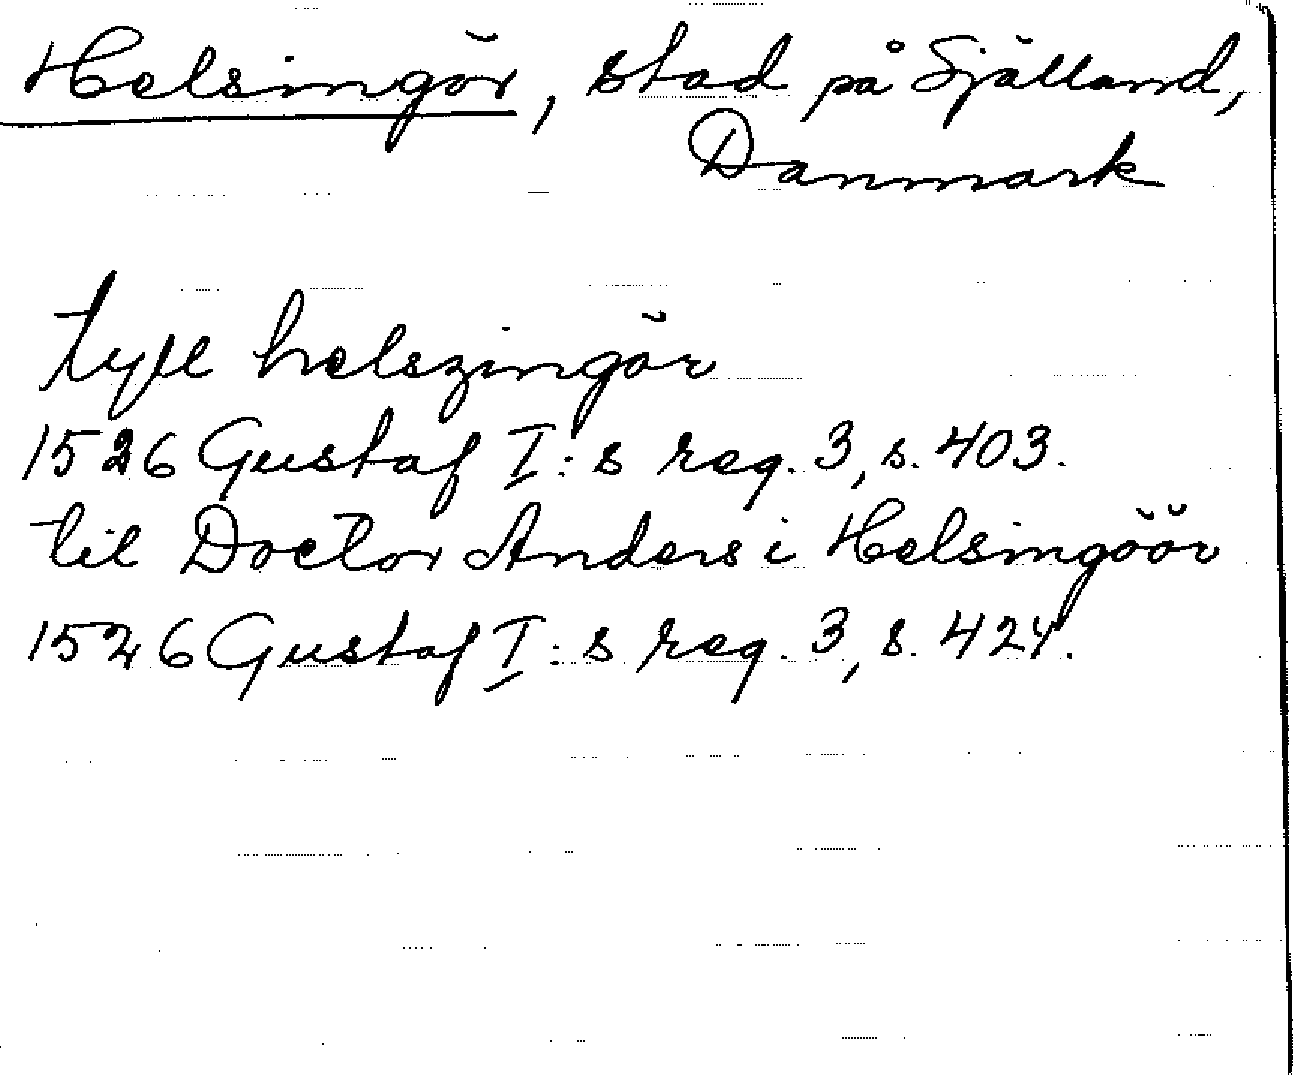 Helsingör, stad på Själland,
Danmark
tyll helszingör
1526 Gustaf I:s reg. 3, s. 403.
til Doctor Anders i Helsingöör
1526 Gustaf I:s reg. 3, s. 424.